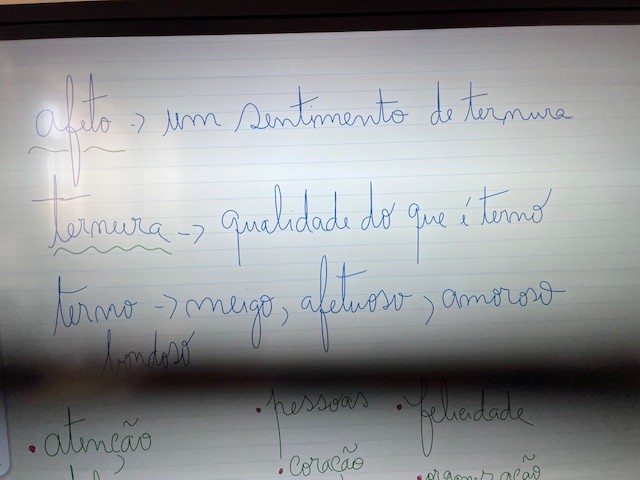 afeto -> um sentimento de ternura
ternura -> qualidade do que é terno
terno -> meigo, afetuoso, amoroso
bondoso
• pessoas • felicidade
• atenção
• coração
• organização